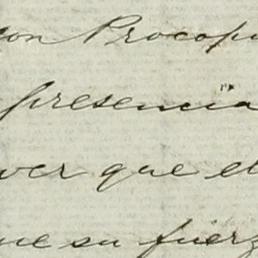 con Procopi
presencia
ver que el
ue su fuerz